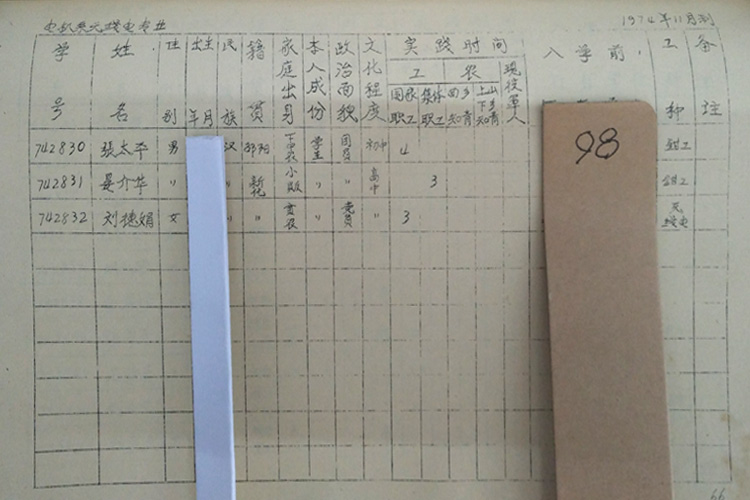 电机系无线电专业 1974年11月制
学号 姓名 性别 出生年月 民族 籍贯 家庭出身 本人成份 政治面貌 文化程度 实践时间 入学前 工种 备注
工 农 现役军人
国家职工 集体职工 回乡知青 上山下乡知青
742830 張太平 男 汉 邵阳 下中农 学生 团员 初中 4 钳工
742831 晏介华 〃 〃 新化 小贩 〃 〃 高中 3 钳工
742832 刘穗娟 女 〃 〃 贫农 〃 党员 〃 3 无线电
98
66